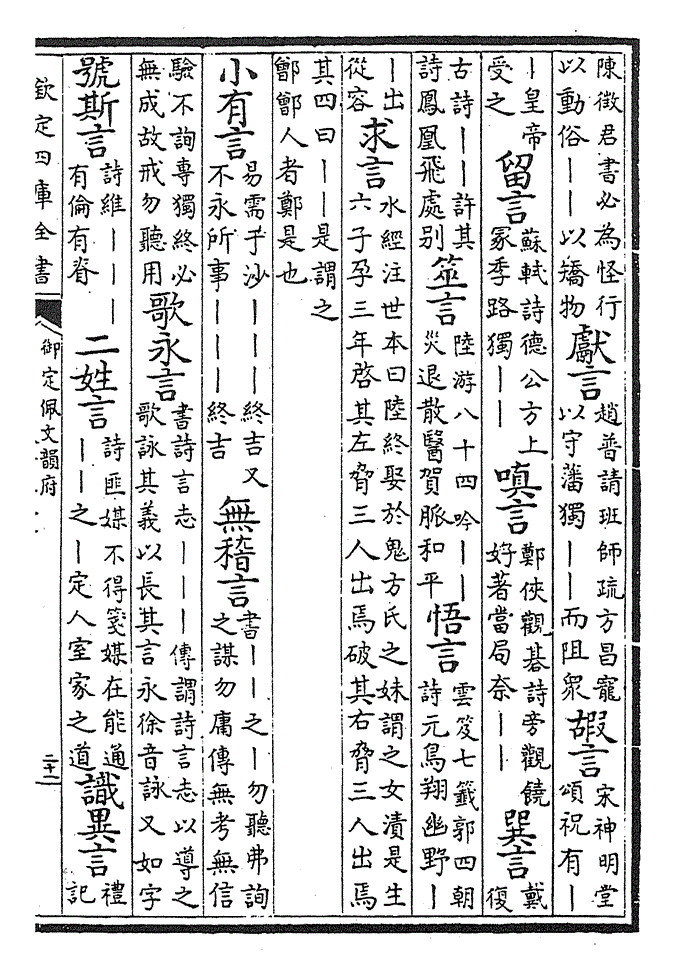 陳徵君書必為怪行
以動俗丨丨以矯物
獻言
趙普請班師疏方昌寵
以守藩獨丨丨而阻衆
嘏言
宋神明堂
頌祝有丨
丨皇帝
受之
留言
蘇軾詩德公方上
冢季路獨丨丨
嗔言
鄭俠觀碁詩旁觀饒
好著當局奈丨丨
巽言
戴
復
古詩丨丨許其
詩鳳凰飛處别
筮言
陸游八十四吟丨丨
災退散醫賀脈和平
悟言
雲笈七籤郭四朝
詩元鳥翔幽野丨
丨出
從容
求言
水經注世本曰陸終娶於鬼方氏之妹謂之女潰是生
六子孕三年啓其左脅三人出焉破其右脅三人出焉
其四曰丨丨是謂之
鄶鄶人者鄭是也
小有言
易需于沙丨丨丨終吉又
不永所事丨丨丨終吉
無稽言
書丨丨之丨勿聽弗詢
之謀勿庸傳無考無信
驗不詢專獨終必
無成故戒勿聽用
歌永言
書詩言志丨丨丨傳謂詩言志以導之
歌詠其義以長其言永徐音詠又如字
號斯言
詩維丨丨丨
有倫有脊
二姓言
詩匪媒不得箋媒在能通
丨丨之丨定人室家之道
識異言
禮
記
欽定四庫全書
御定佩文韻府
二十二